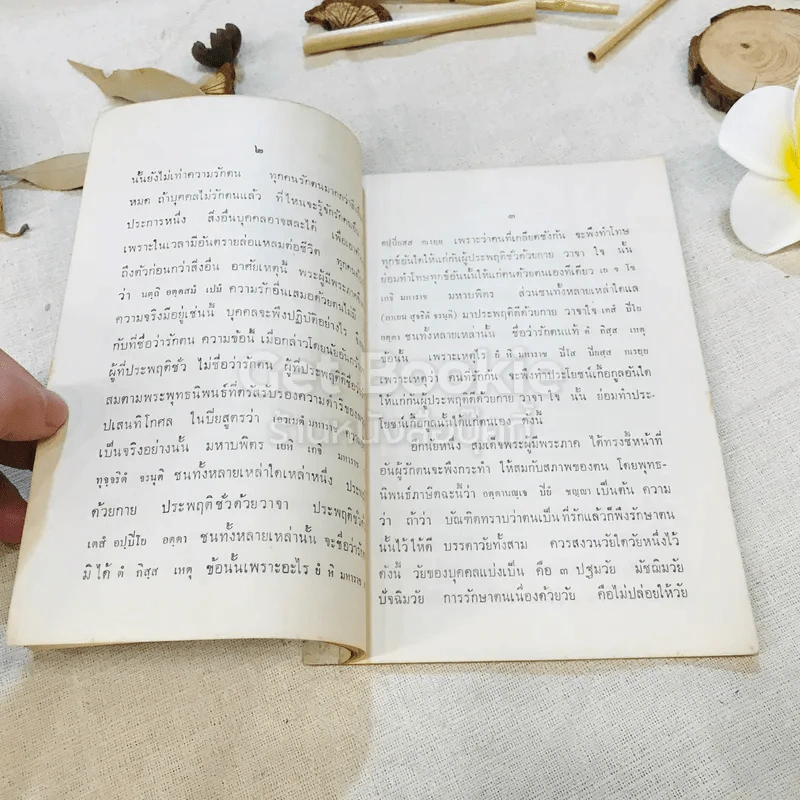 ๒
นั้นยังไม่เท่าความรักตน ทุกคนรักตนมากกว่าสิ่งอื่น
หมด ถ้าบุคคลไม่รักตนแล้ว ที่ไหนจะรู้จักรักคนอื่น
ประการหนึ่ง สิ่งอื่นบุคคลอาจสละได้ เพื่อเอา
เพราะในเวลามีอันตรายล่อแหลมต่อชีวิต ทุกคน
ถึงตัวก่อนกว่าสิ่งอื่น อาศัยเหตุนี้ พระผู้มีพระภาค
ว่า นตฺถิ อตฺตสมํ เปมํ ความรักอื่นเสมอด้วยตนไม่มี
ความจริงมีอยู่เช่นนี้ บุคคลจะพึงปฏิบัติอย่างไร
กับที่ชื่อว่ารักตน ความข้อนี้ เมื่อกล่าวโดยนัยอัน
ผู้ที่ประพฤติชั่ว ไม่ชื่อว่ารักตน ผู้ที่ประพฤติชอบ
สมตามพระพุทธนิพนธ์ที่ตรัสรับรองความดำริของพระ
ปเสนทิโกศล ในปิยสูตรว่า เอวเมตํ มหาราช
เป็นจริงอย่างนั้น มหาบพิตร เยหิ เกจิ มหาราช
ทุจฺจริตํ จรนฺติ ชนทั้งหลายเหล่าใดเหล่าหนึ่ง
ด้วยกาย ประพฤติชั่วด้วยวาจา ประพฤติชั่ว
เตสํ อปฺปิโย อตฺตา ชนทั้งหลายเหล่านั้น จะชื่อว่ารัก
มิได้ ตํ กิสฺส เหตุ ข้อนั้นเพราะอะไร ยํ หิ มหาราช
๓
อปฺปิยสฺส กเรยฺย เพราะว่าคนที่เกลียดชังกัน จะพึงทำโทษ
ทุกข์อันใดให้แก่กันผู้ประพฤติชั่วด้วยกาย วาจา ใจ นั้น
ย่อมทำโทษทุกข์อันนั้นให้แก่ตนด้วยตนเองทีเดียว เย จ โข
เกจิ มหาราช มหาบพิตร ส่วนชนทั้งหลายเหล่าใดแล
(กาเยน สุจริตํ จรนฺติ) มาประพฤติดีด้วยกาย วาจา ใจ เตสํ ปิโย
อตฺตา ชนทั้งหลายเหล่านั้น ชื่อว่ารักตนแท้ ตํ กิสฺส เหตุ
ข้อนั้น เพราะเหตุไร ยํ หิ มหาราช ปิโย ปิยสฺส กเรยฺย
เพราะเหตุว่า คนที่รักกัน จะพึงทำประโยชน์เกื้อกูลอันใด
ให้แก่กันผู้ประพฤติดีด้วยกาย วาจา ใจ นั้น ย่อมทำประ-
โยชน์เกื้อกูลนั้นให้แก่ตนเอง ดังนี้
อีกนัยหนึ่ง สมเด็จพระผู้มีพระภาค ได้ทรงชี้หน้าที่
อันผู้รักตนจะพึงกระทำ ให้สมกับสภาพของตน โดยพุทธ-
นิพนธ์ภาษิตฉะนี้ว่า อตฺตานญฺเจ ปิยํ ชญฺญา เป็นต้น ความ
ว่า ถ้าว่า บัณฑิตทราบว่าตนเป็นที่รักแล้วก็พึงรักษาตน
นั้นไว้ให้ดี บรรดาวัยทั้งสาม ควรสงวนวัยใดวัยหนึ่งไว้
ดังนี้ วัยของบุคคลแบ่งเป็น คือ ๓ ปฐมวัย มัชฌิมวัย
ปัจฉิมวัย การรักษาตนเนื่องด้วยวัย คือไม่ปล่อยให้วัย
Get Bookie
ร้านหนังสือบุ๊คกี้